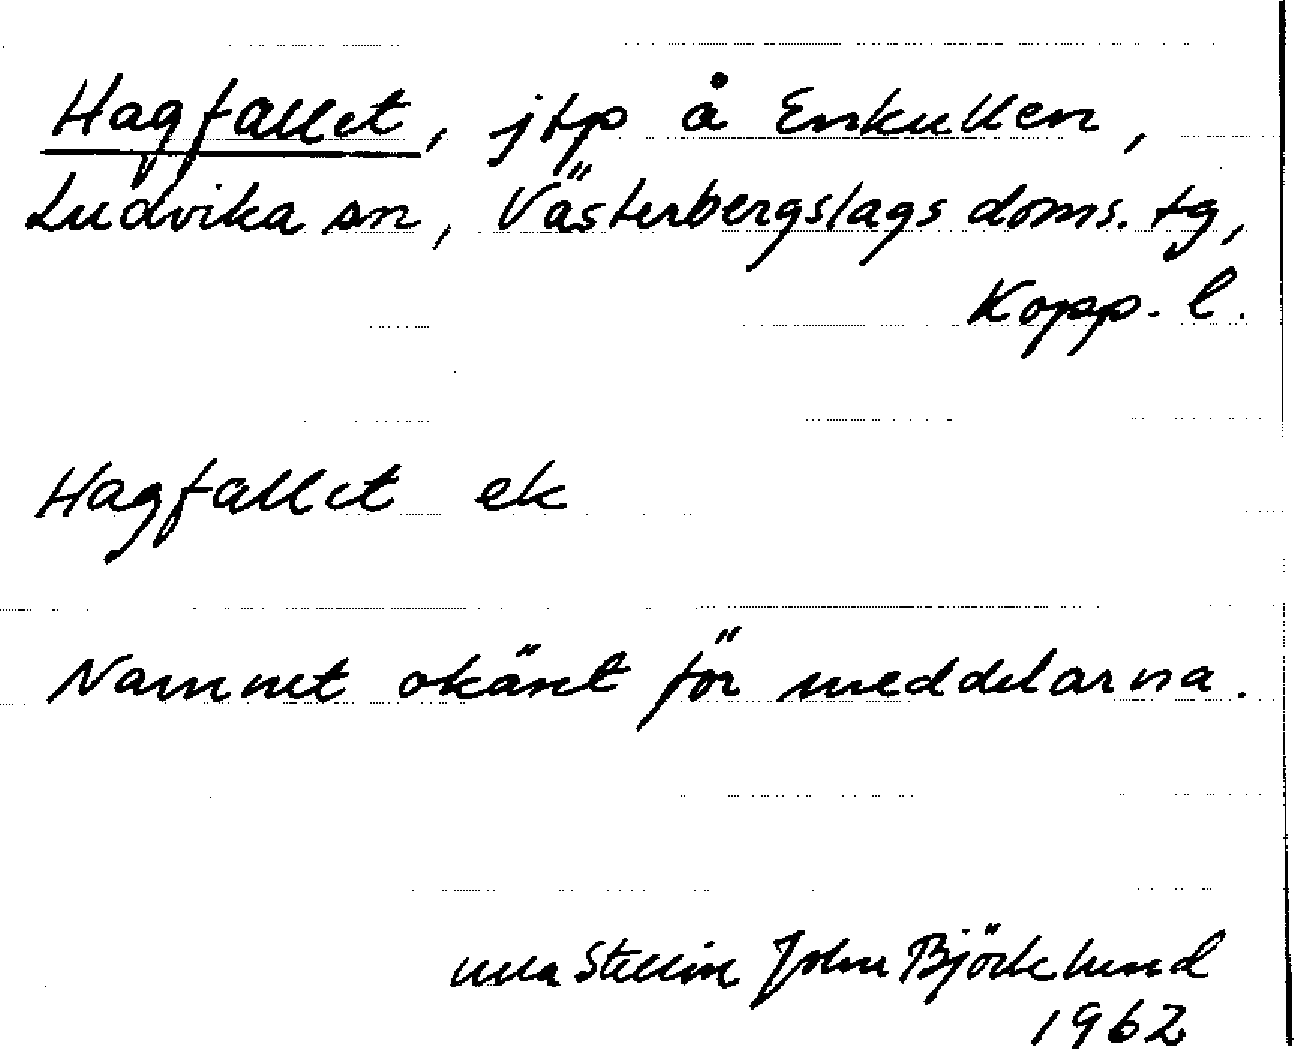 Hagfallet, jtp å Enkullen,
Ludvika sn, Västerbergslags doms. tg,
Kopp. l.
Hagfallet ek
Namnet okänt för meddelarna.
Ulla Stellin John Björklund
1962